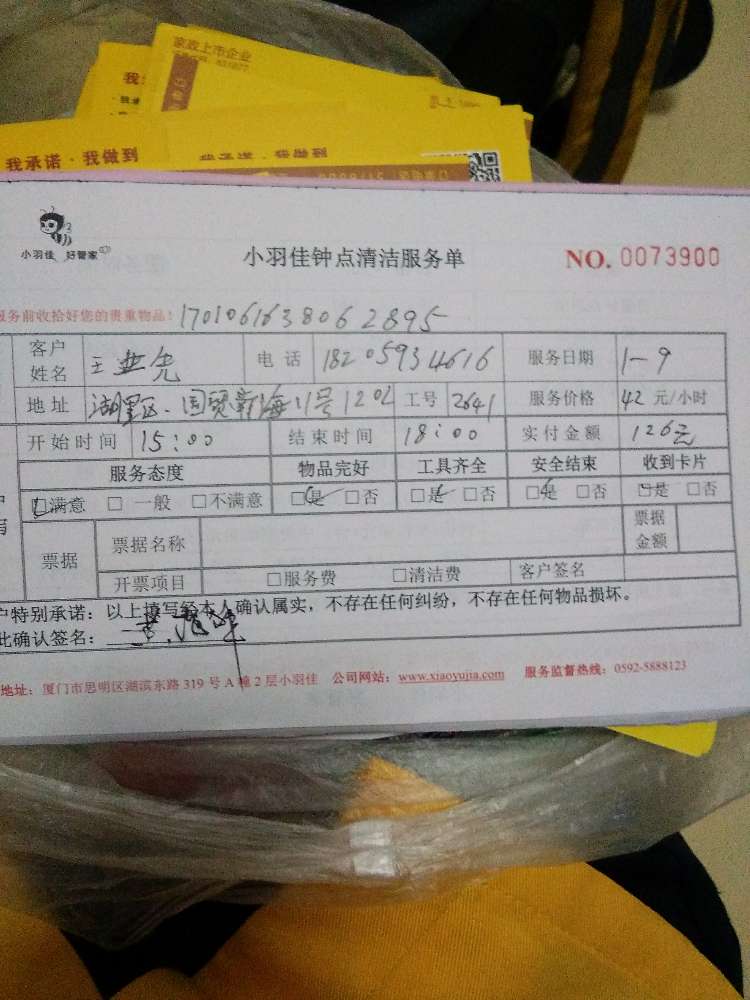 家政上市企业
我承诺·我做到
我承诺·我做到
小羽佳 好管家
小羽佳钟点清洁服务单
NO. 0073900
服务前收拾好您的贵重物品! 1701061638062895
客户姓名 王 电话 18205934616 服务日期 1-9
地址 湖里区、国贸新海11号1201 工号 2641 服务价格 42元/小时
开始时间 15:00 结束时间 18:00 实付金额 126元
服务态度 物品完好 工具齐全 安全结束 收到卡片
☑满意 □一般 □不满意 ☑是 □否 ☑是 □否 ☑是 □否 ☑是 □否
票据 票据名称 票据金额
开票项目 □服务费 □清洁费 客户签名
户特别承诺:以上填写经本人确认属实,不存在任何纠纷,不存在任何物品损坏。
此确认签名:
地址:厦门市思明区湖滨东路319号A幢2层小羽佳 公司网站:www.xiaoyujia.com 服务监督热线:0592-5888123